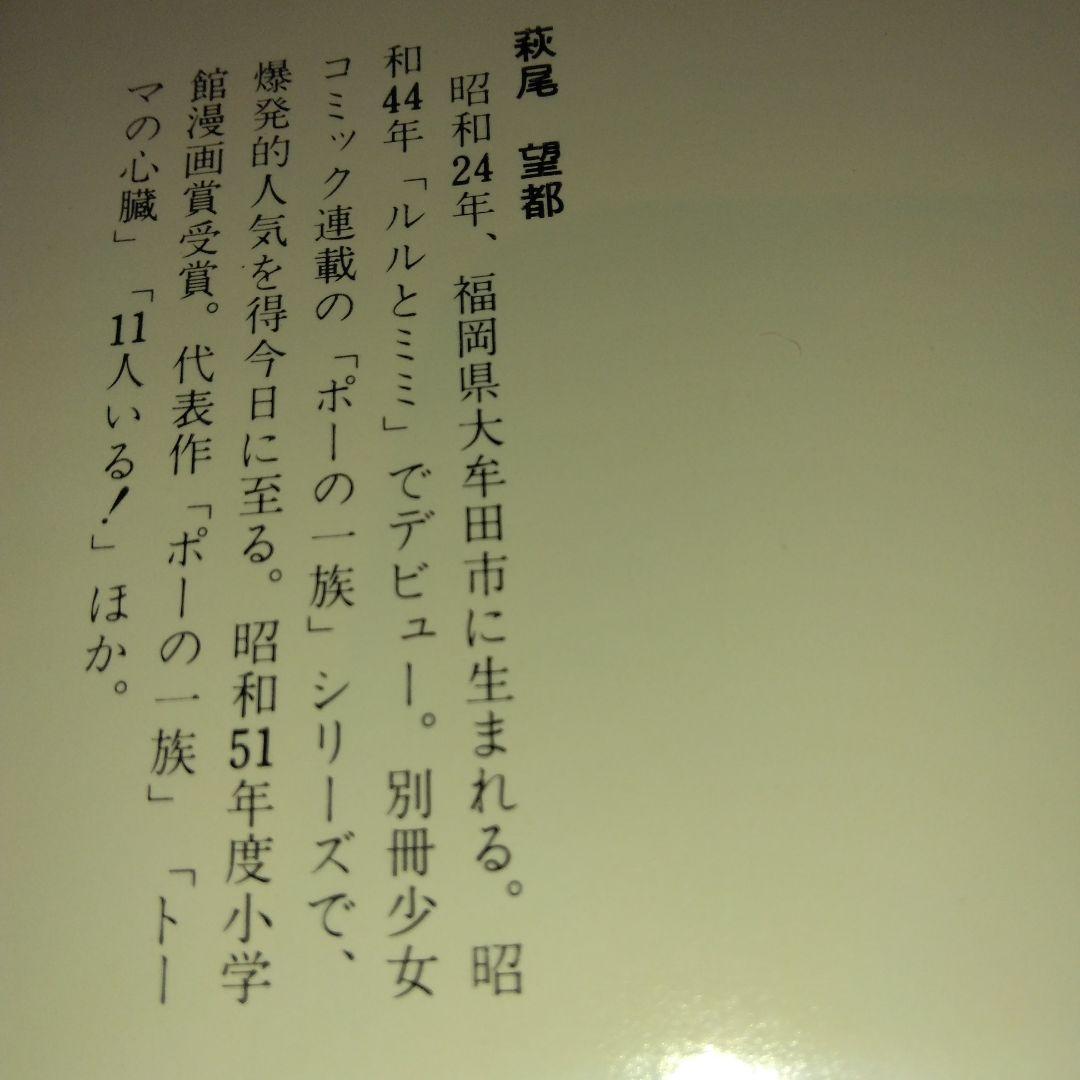 萩尾 望都
昭和24年、福岡県大牟田市に生まれる。昭
和44年「ルルとミミ」でデビュー。別冊少女
コミック連載の「ポーの一族」シリーズで、
爆発的人気を得今日に至る。昭和51年度小学
館漫画賞受賞。代表作「ポーの一族」「トー
マの心臓」「11人いる!」ほか。